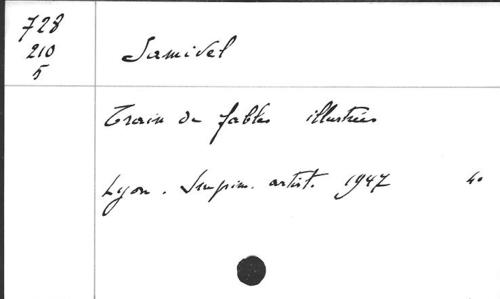 728
210
5
Samivel
Train de fables illustrées
Lyon. Imprim. artist. 1947 4°